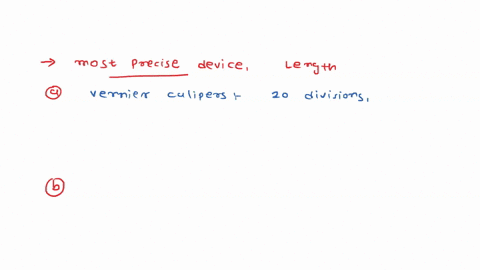 → most precise device, Length
ⓐ vernier calipers :- 20 divisions,
ⓑ